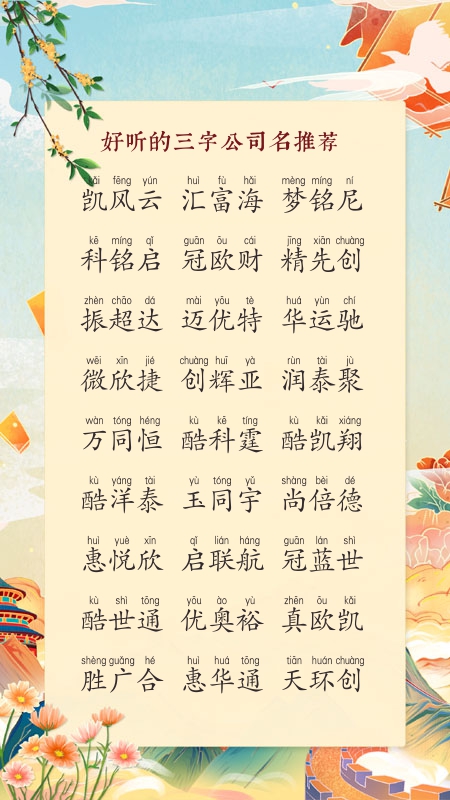 好听的三字公司名推荐
kǎi fēng yún huì fù hǎi mèng míng ní
凯风云 汇富海 梦铭尼
kē míng qǐ guān ōu cái jīng xiān chuàng
科铭启 冠欧财 精先创
zhèn chāo dá mài yōu tè huá yùn chí
振超达 迈优特 华运驰
wēi xīn jié chuàng huī yà rùn tài jù
微欣捷 创辉亚 润泰聚
wàn tóng héng kù kē tíng kù kǎi xiáng
万同恒 酷科霆 酷凯翔
kù yáng tài yù tóng yǔ shàng bèi dé
酷洋泰 玉同宇 尚倍德
huì yuè xīn qǐ lián háng guān lán shì
惠悦欣 启联航 冠蓝世
kù shì tōng yōu ào yù zhēn ōu kǎi
酷世通 优奥裕 真欧凯
shèng guǎng hé huì huá tōng tiān huán chuàng
胜广合 惠华通 天环创